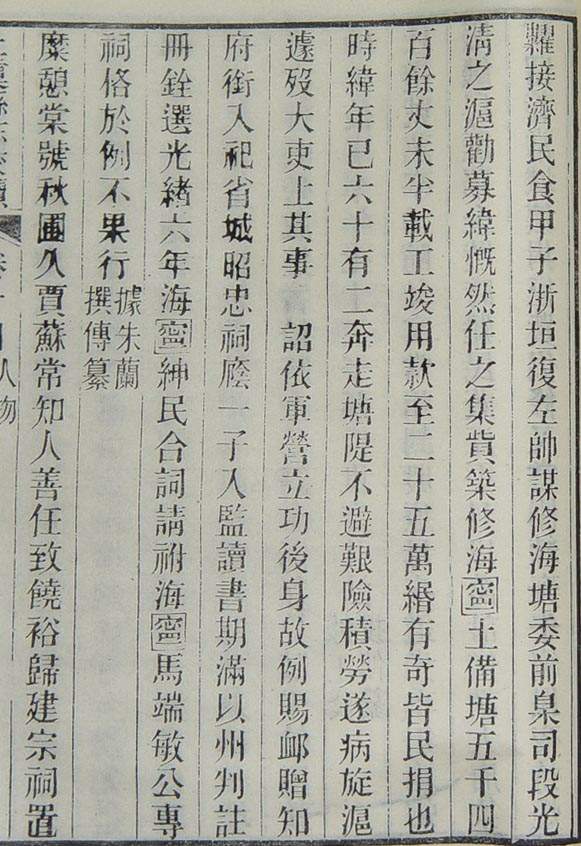 糶接濟民食甲子浙垣復左帥謀修海塘委前臬司段光
淸之滬勸募緯慨然任之集貲築修海寧土備塘五千四
百餘丈未半載工竣用款至二十五萬緡有奇皆民捐也
時緯年已六十有二奔走塘隄不避艱險積勞遂病旋滬
遽歿大吏上其事 詔依軍營立功後身故例賜卹贈知
府銜入祀省城昭忠祠廕一子入監讀書期滿以州判註
冊銓選光緒六年海寧紳民合詞請祔海寧馬端敏公專
祠格於例不果行據朱蘭
撰傳纂
糜憩棠號秋圃久賈蘇常知人善任致饒裕歸建宗祠置
人物